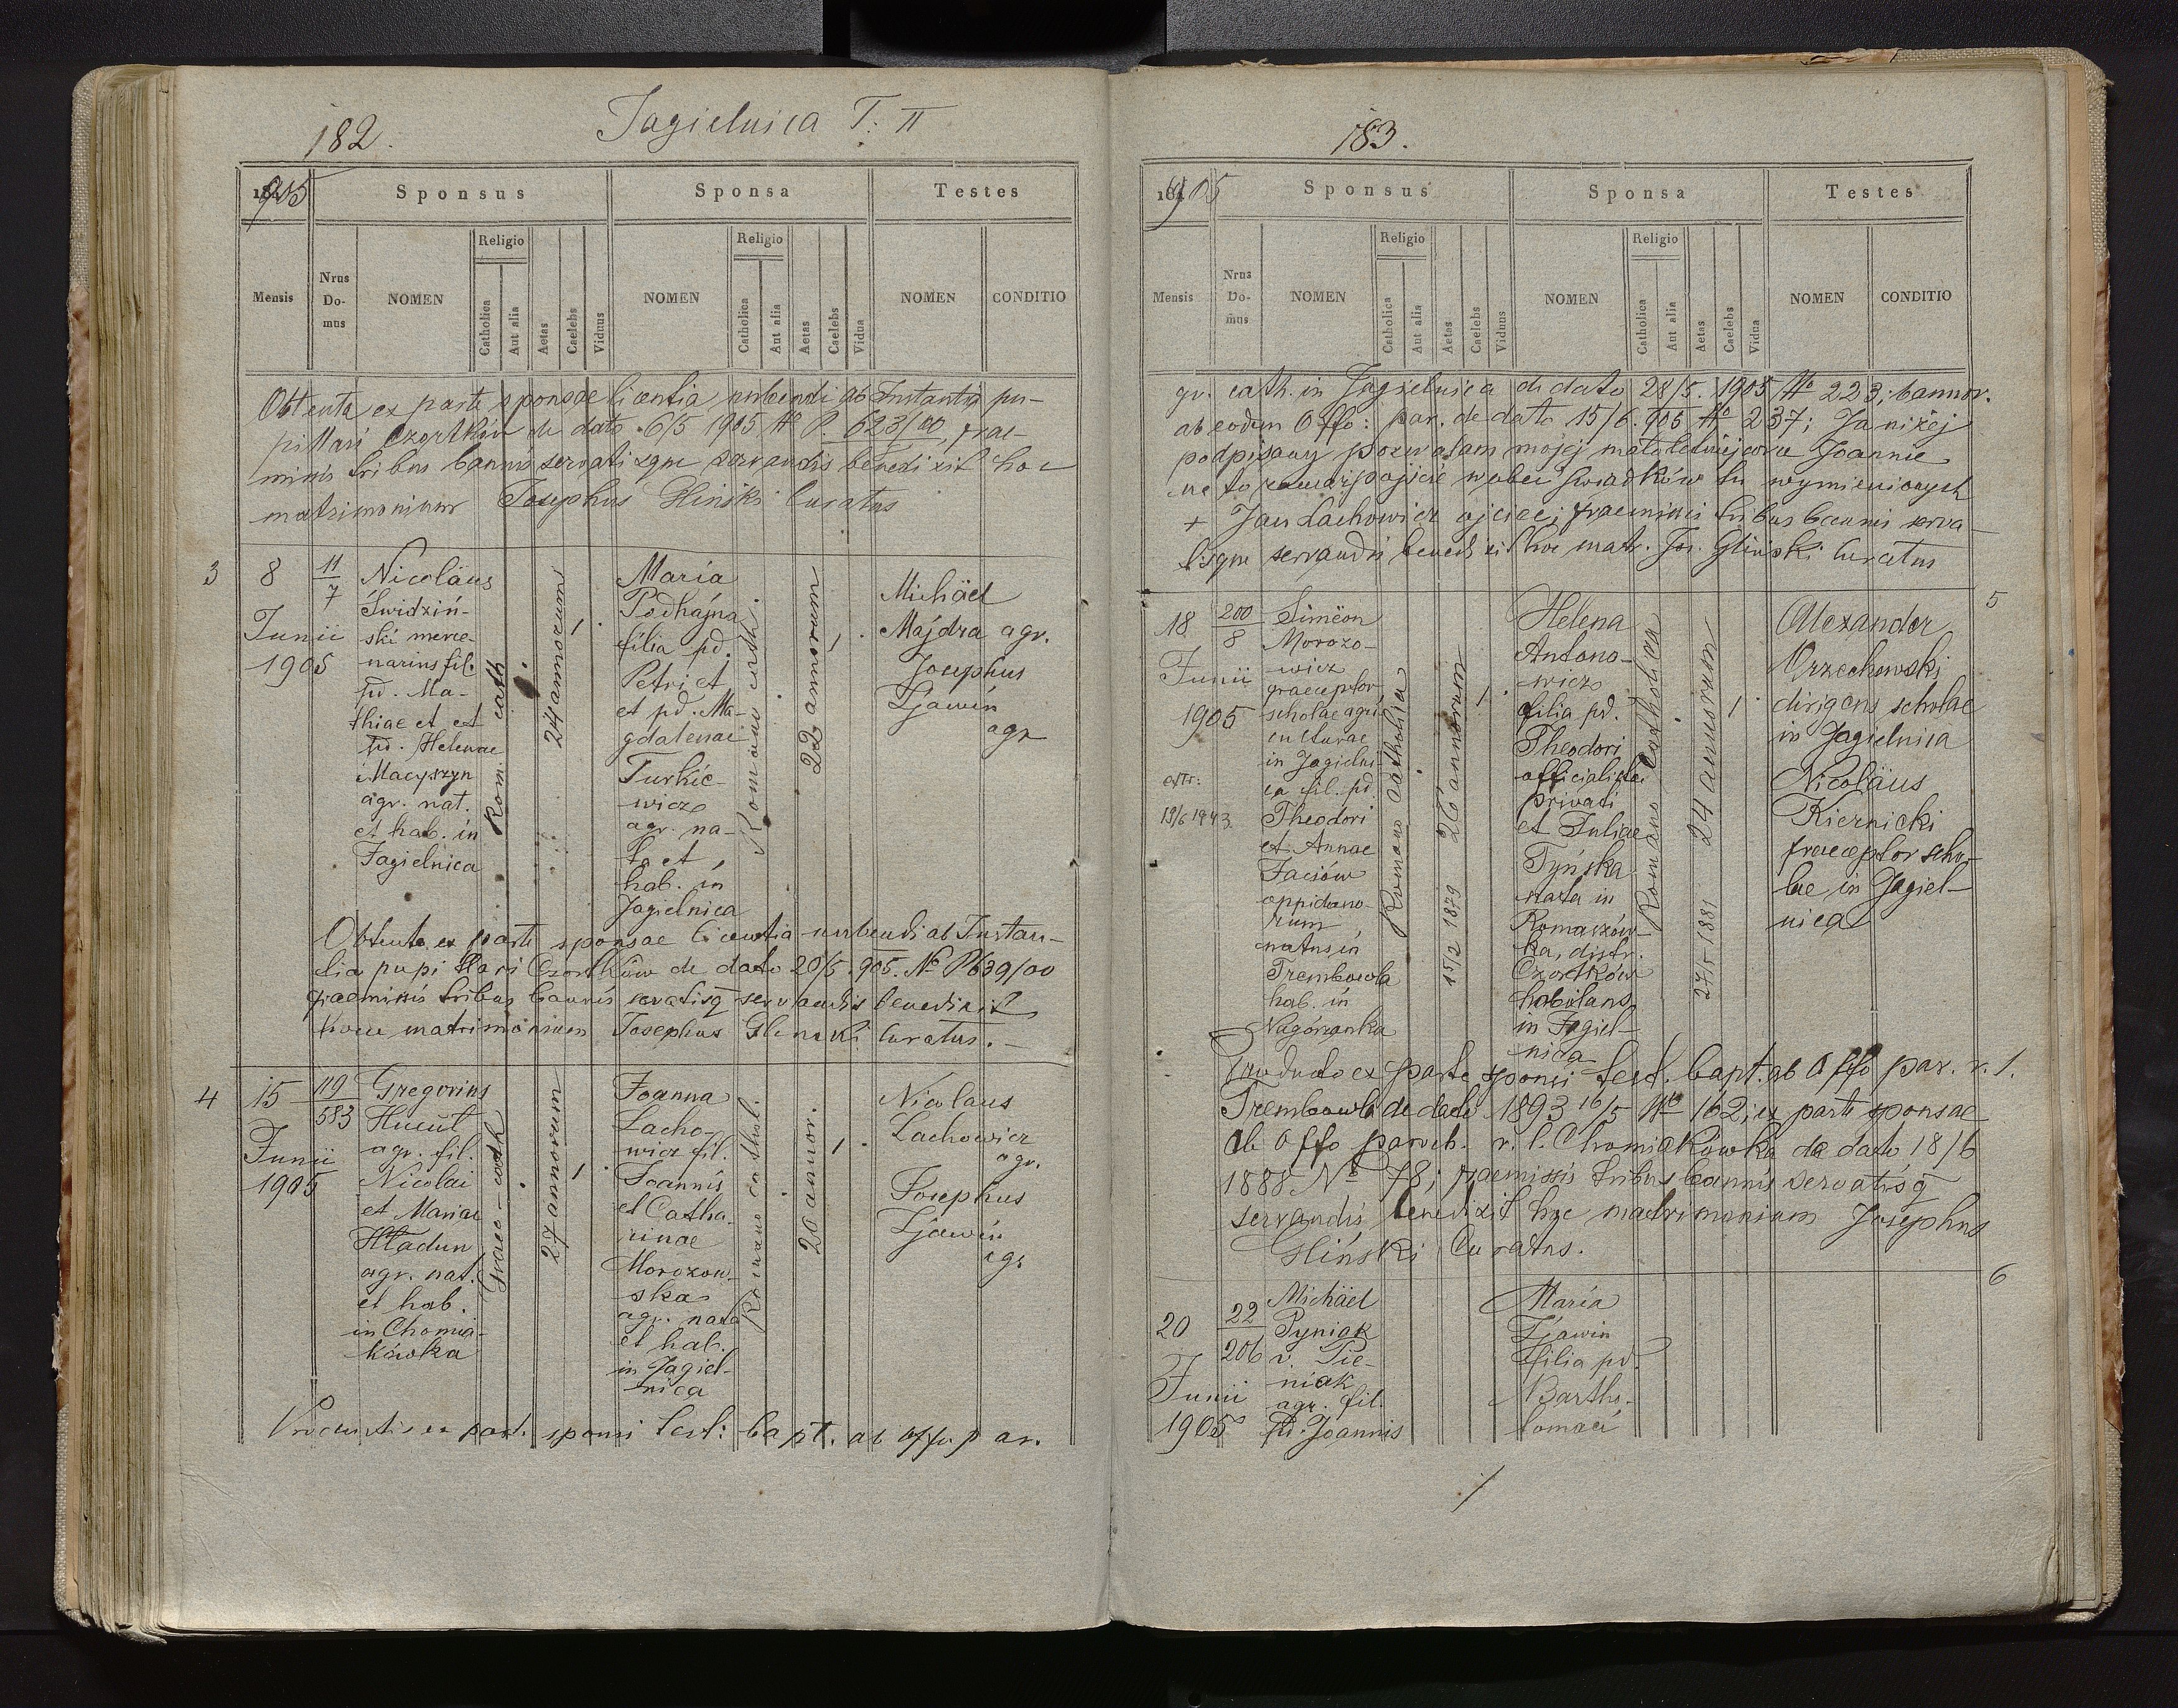 182.
Jagielnica T. II
1905
Sponsus
Sponsa
Testes
Mensis
Nrus Domus
NOMEN
Religio
Catholica
Aut alia
Aetas
Caelebs
Viduus
NOMEN
Religio
Catholica
Aut alia
Aetas
Caelebs
Vidua
NOMEN
CONDITIO
Obtenta ex parte sponsae licentia nubendi ab Instantia pu-
pillari Czortków de dato 6/5 1905 No P. 623/00, prae-
missis tribus bannis servatisque servandis benedixit hoc
matrimonium Josephus Gliński Curatus
3
8
Junii
1905
11
7
Nicoläus
Świdziń-
ski merce-
narius fil.
pd. Ma-
thiae et et
pd. Helenae
Macyszyn
agr. nat.
et hab. in
Jagielnica
Rom. cath
24 annorum
Maria
Podhajna
filia pd.
Petri et
et pd. Ma-
gdalenae
Turkie-
wicz
agr. na-
ta et
hab. in
Jagielnica
Romano cath.
22 annorum
Michäel
Majdra agr.
Josephus
Zjawin
agr
Obtenta ex parte sponsae licentia nubendi ab Instan-
tia pupillari Czortków de dato 20/5. 905. No P 639/00
praemissis tribus bannis servatisq servandis benedixit
hocce matrimonium Josephus Glinski Curatus.
4
15
Junii
1905
119
583
Gregorius
Hucuł
agr. fil.
Nicolai
et Mariae
Hładun
agr. nat.
et hab.
in Chomia-
kówka
Graec-cath
27 annorum
Joanna
Lacho-
wicz fil.
Joannis
et Catha-
rinae
Morozow-
ska
agr. nata
et hab.
in Jagiel-
nica
Romano cathol.
20 annor.
Nicolaus
Lachowicz
agr.
Josephus
Zjawin
agr
Productis ex part. sponsi test: bapt. ab offo par.
183.
1905
Sponsus
Sponsa
Testes
Mensis
Nrus Domus
NOMEN
Religio
Catholica
Aut alia
Aetas
Caelebs
Viduus
NOMEN
Religio
Catholica
Aut alia
Aetas
Caelebs
Vidua
NOMEN
CONDITIO
gr. cath. in Jagielnica de dato 28/5. 1905 No 223; bannor.
ab eodem Offo: par. de dato 15/6. 905 No 237; Ja niżej
podpisany pozwalam mojej małoletniej córce Joannie
na to zamążpójście wobec świadków tu wymienionych
+ Jan Lachowicz ojciec; praemissis tribus bannis serva-
tisque servandis benedixit hoc matr. Jos. Gliński Curatus
5
18
Junii
1905
extr:
12/6 1943.
200
8
Simëon
Morozo-
wicz
praeceptor
scholae agri-
culturae
in Jagielni-
ca fil. pd.
Theodori
et Annae
Jaciów
oppidano-
rum
natus in
Trembowla
hab. in
Nagórzanka
Romano catholica
26 annorum
15/2 1879
Helena
Antono-
wicz
filia pd.
Theodori
officialistae
privati
et Juliae
Tyńska
nata in
Romaszów-
ka, distr.
Czortków
habitans
in Jagiel-
nica
Romano catholica
24 annorum
27/5 1881
Alexander
Orzechowski
dirigens scholae
in Jagielnica
Nicoläus
Kiernicki
praeceptor scho-
lae in Jagiel-
nica
Producto ex parte sponsi test. bapt. ab Offo par. r. l.
Trembowla de dato 1893 16/5 No 162; ex parte sponsae
ab Offo paroch. r. l. Chomiakówka de dato 18/6
1888 No 78; praemissis tribus bannis servatisq
servandis benedixit hoc matrimonium Josephus
Gliński Curatus.
6
20
Junii
1905
22
206
Michäel
Pyniak
v. Pie-
niak
agr. fil.
pd. Joannis
Maria
Zjawin
filia pd.
Bartho-
lomaei